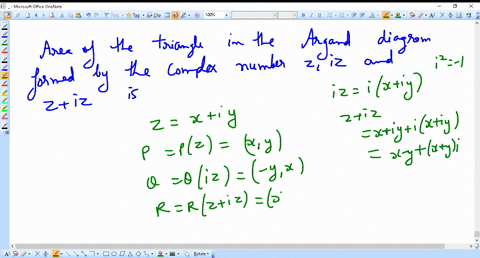 Microsoft Office OneNote
Area of the triangle in the Argand diagram
formed by the Complex number z, iz and
z+iz is
i²=-1
iz = i(x+iy)
z+iz
= x+iy+i(x+iy)
= x-y+(x+y)i
z = x+iy
P = P(z) = (x,y)
Q = Q(iz) = (-y,x)
R = R(z+iz) = (x